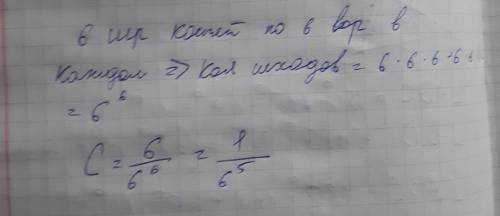 6 игр костей по 6 вар в
каждом => кол исходов = 6·6·6·6·6 6
= 6^6
C = 6/6^6 = 1/6^5